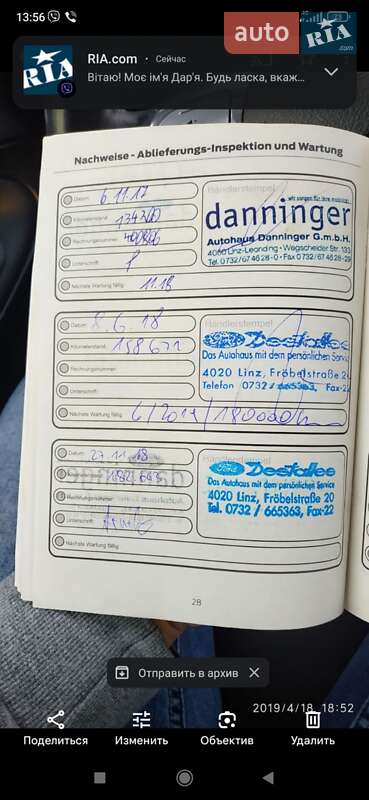 13:56
auto RIA
RIA.com • Сейчас
Вітаю! Моє ім'я Дар'я. Будь ласка, вкаж...
Nachweise - Ablieferungs-Inspektion und Wartung
Datum: 6.11.17
Händlerstempel
wir sorgen für Ihre Mobilität
danninger
Kilometerstand:
Rechnungsnummer:
Autohaus Danninger G.m.b.H.
4060 Linz-Leonding • Wegscheider Str. 133
Unterschrift:
Tel. 0732/67 46 28-0 • Fax 0732/67 46 28-29
Nächste Wartung fällig: 11.18
Datum: 8.6.18
Händlerstempel
Kilometerstand: 158671
Das Autohaus mit dem persönlichen Service
Rechnungsnummer:
4020 Linz, Fröbelstraße 20
Unterschrift:
Telefon 0732/ 665363, Fax-22
Nächste Wartung fällig: 6/2019/180000km
Datum: 27.11.18
Ford
Das Autohaus mit dem persönlichen Service
4020 Linz, Fröbelstraße 20
Rechnungsnummer:
Tel. 0732 / 665363, Fax-22
Unterschrift:
Nächste Wartung fällig:
28
Отправить в архив
2019/4/18 18:52
Поделиться
Изменить
Объектив
Удалить